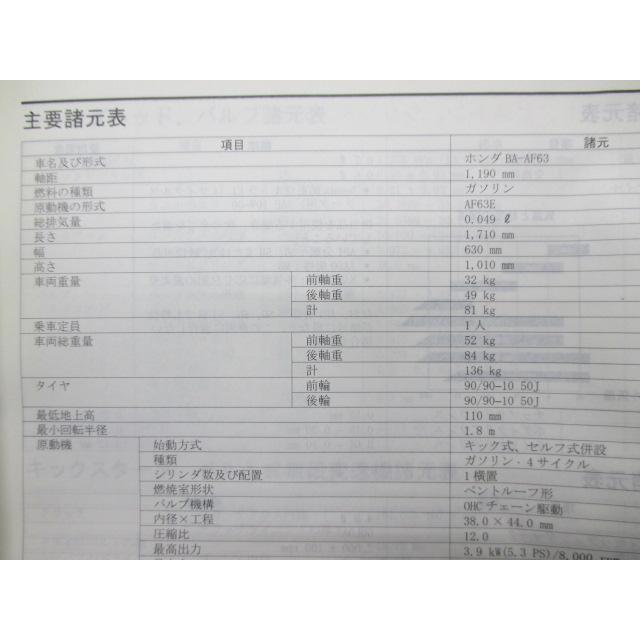 主要諸元表
項目 諸元
車名及び形式 ホンダ BA-AF63
軸距 1,190 mm
燃料の種類 ガソリン
原動機の形式 AF63E
総排気量 0.049 ℓ
長さ 1,710 mm
幅 630 mm
高さ 1,010 mm
車両重量 前軸重 32 kg
後軸重 49 kg
計 81 kg
乗車定員 1人
車両総重量 前軸重 52 kg
後軸重 84 kg
計 136 kg
タイヤ 前輪 90/90-10 50J
後輪 90/90-10 50J
最低地上高 110 mm
最小回転半径 1.8 m
原動機 始動方式 キック式、セルフ式併設
種類 ガソリン・4サイクル
シリンダ数及び配置 1横置
燃焼室形状 ペントルーフ形
バルブ機構 OHCチェーン駆動
内径×工程 38.0 × 44.0 mm
圧縮比 12.0
最高出力 3.9 kW(5.3 PS)/8,000